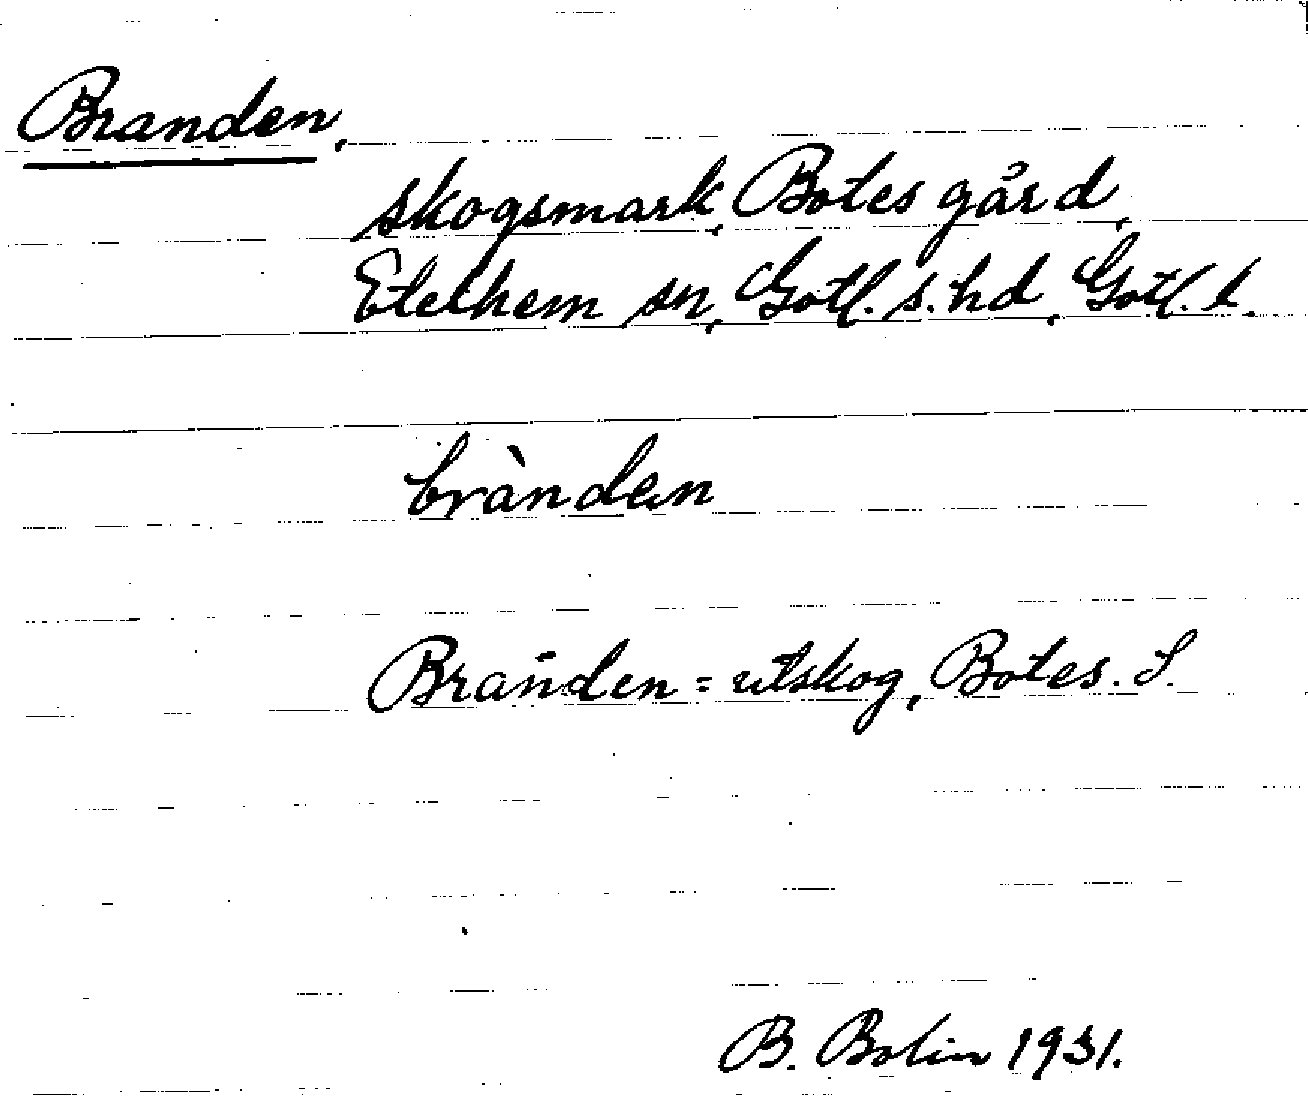 Branden,
skogsmark, Botes gård,
Etelhem sn, Gotl. s. hd, Gotl. l.
bràndėn
Branden = utskog, Botes. S.
B. Bolin 1931.